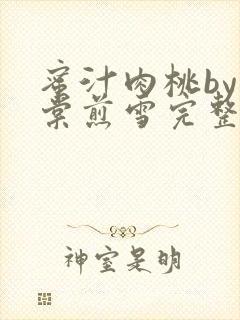 蜜汁肉桃by
棠煎雪完整
神室是明